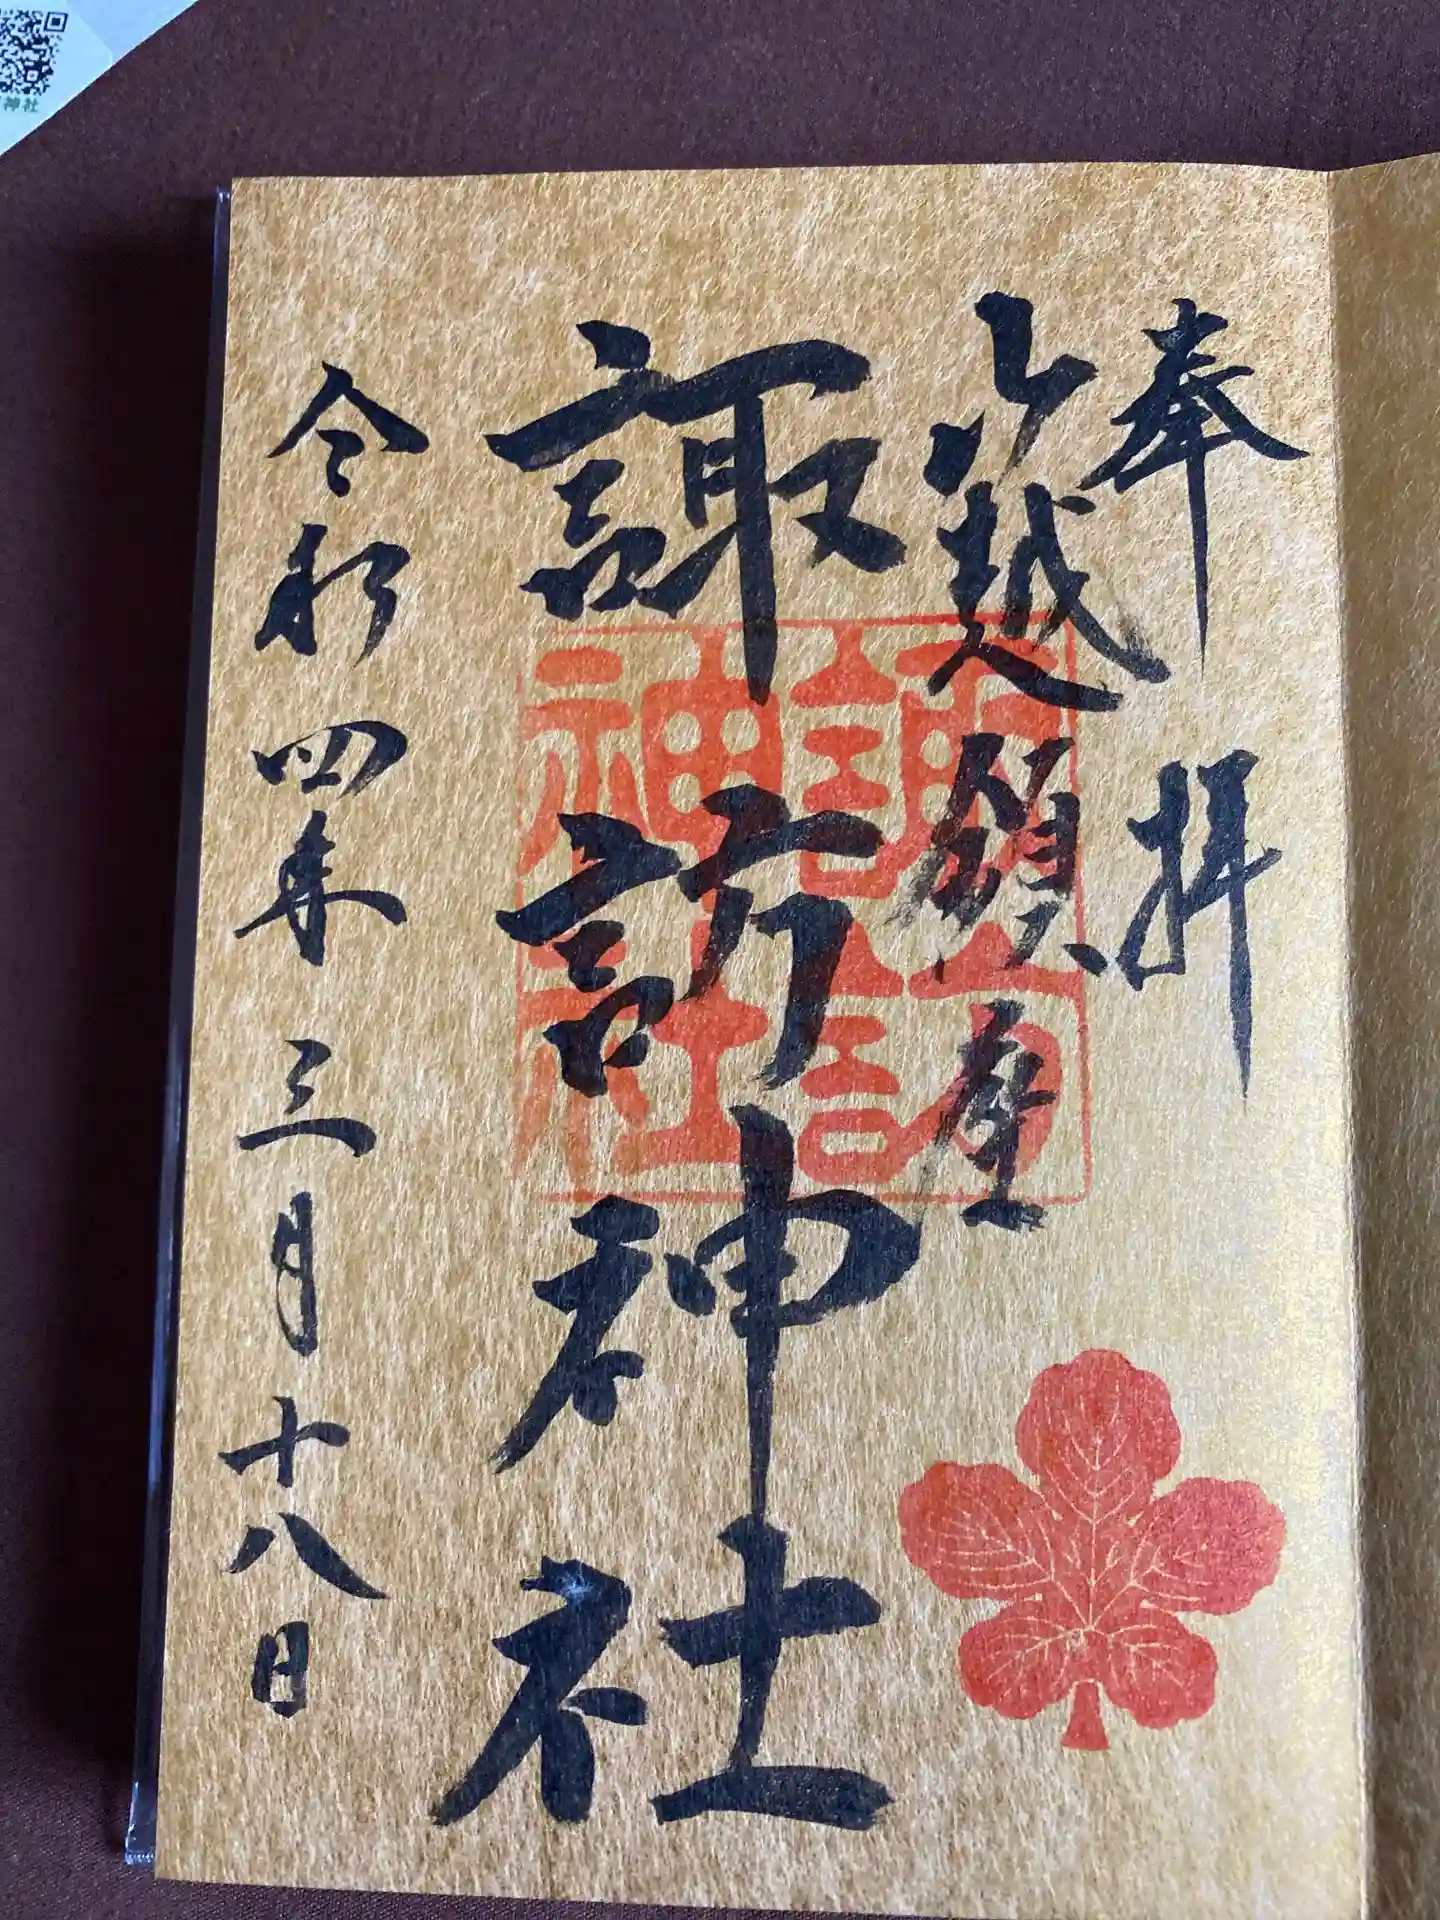 奉拝
越
諏訪神社
諏訪
神社
令和四年三月十八日
神社